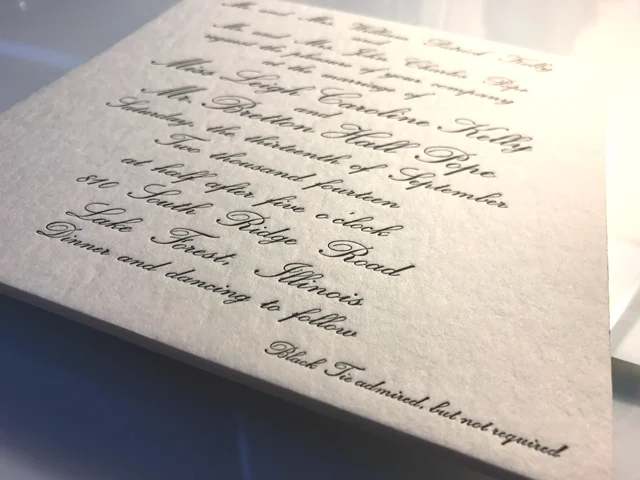 Mr. and Mrs. William Patrick Kelly
and
Mr. and Mrs. John Charles Pope
request the pleasure of your company
at the marriage of
Miss Leigh Caroline Kelly
and
Mr. Bretton Hall Pope
Saturday, the thirteenth of September
Two thousand fourteen
at half after five o'clock
810 South Ridge Road
Lake Forest, Illinois
Dinner and dancing to follow
Black Tie admired, but not required